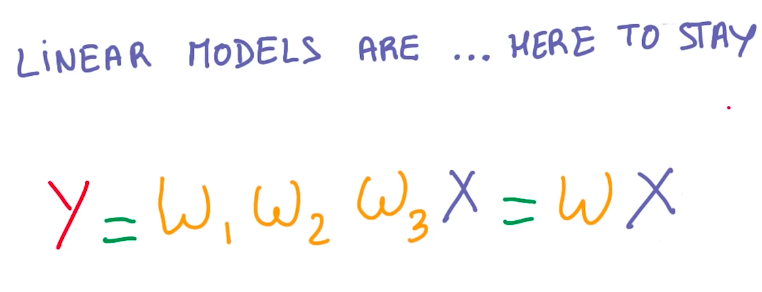 LiNEAR MODELS ARE ... HERE TO STAY
Y = W₁ W₂ W₃ X = W X